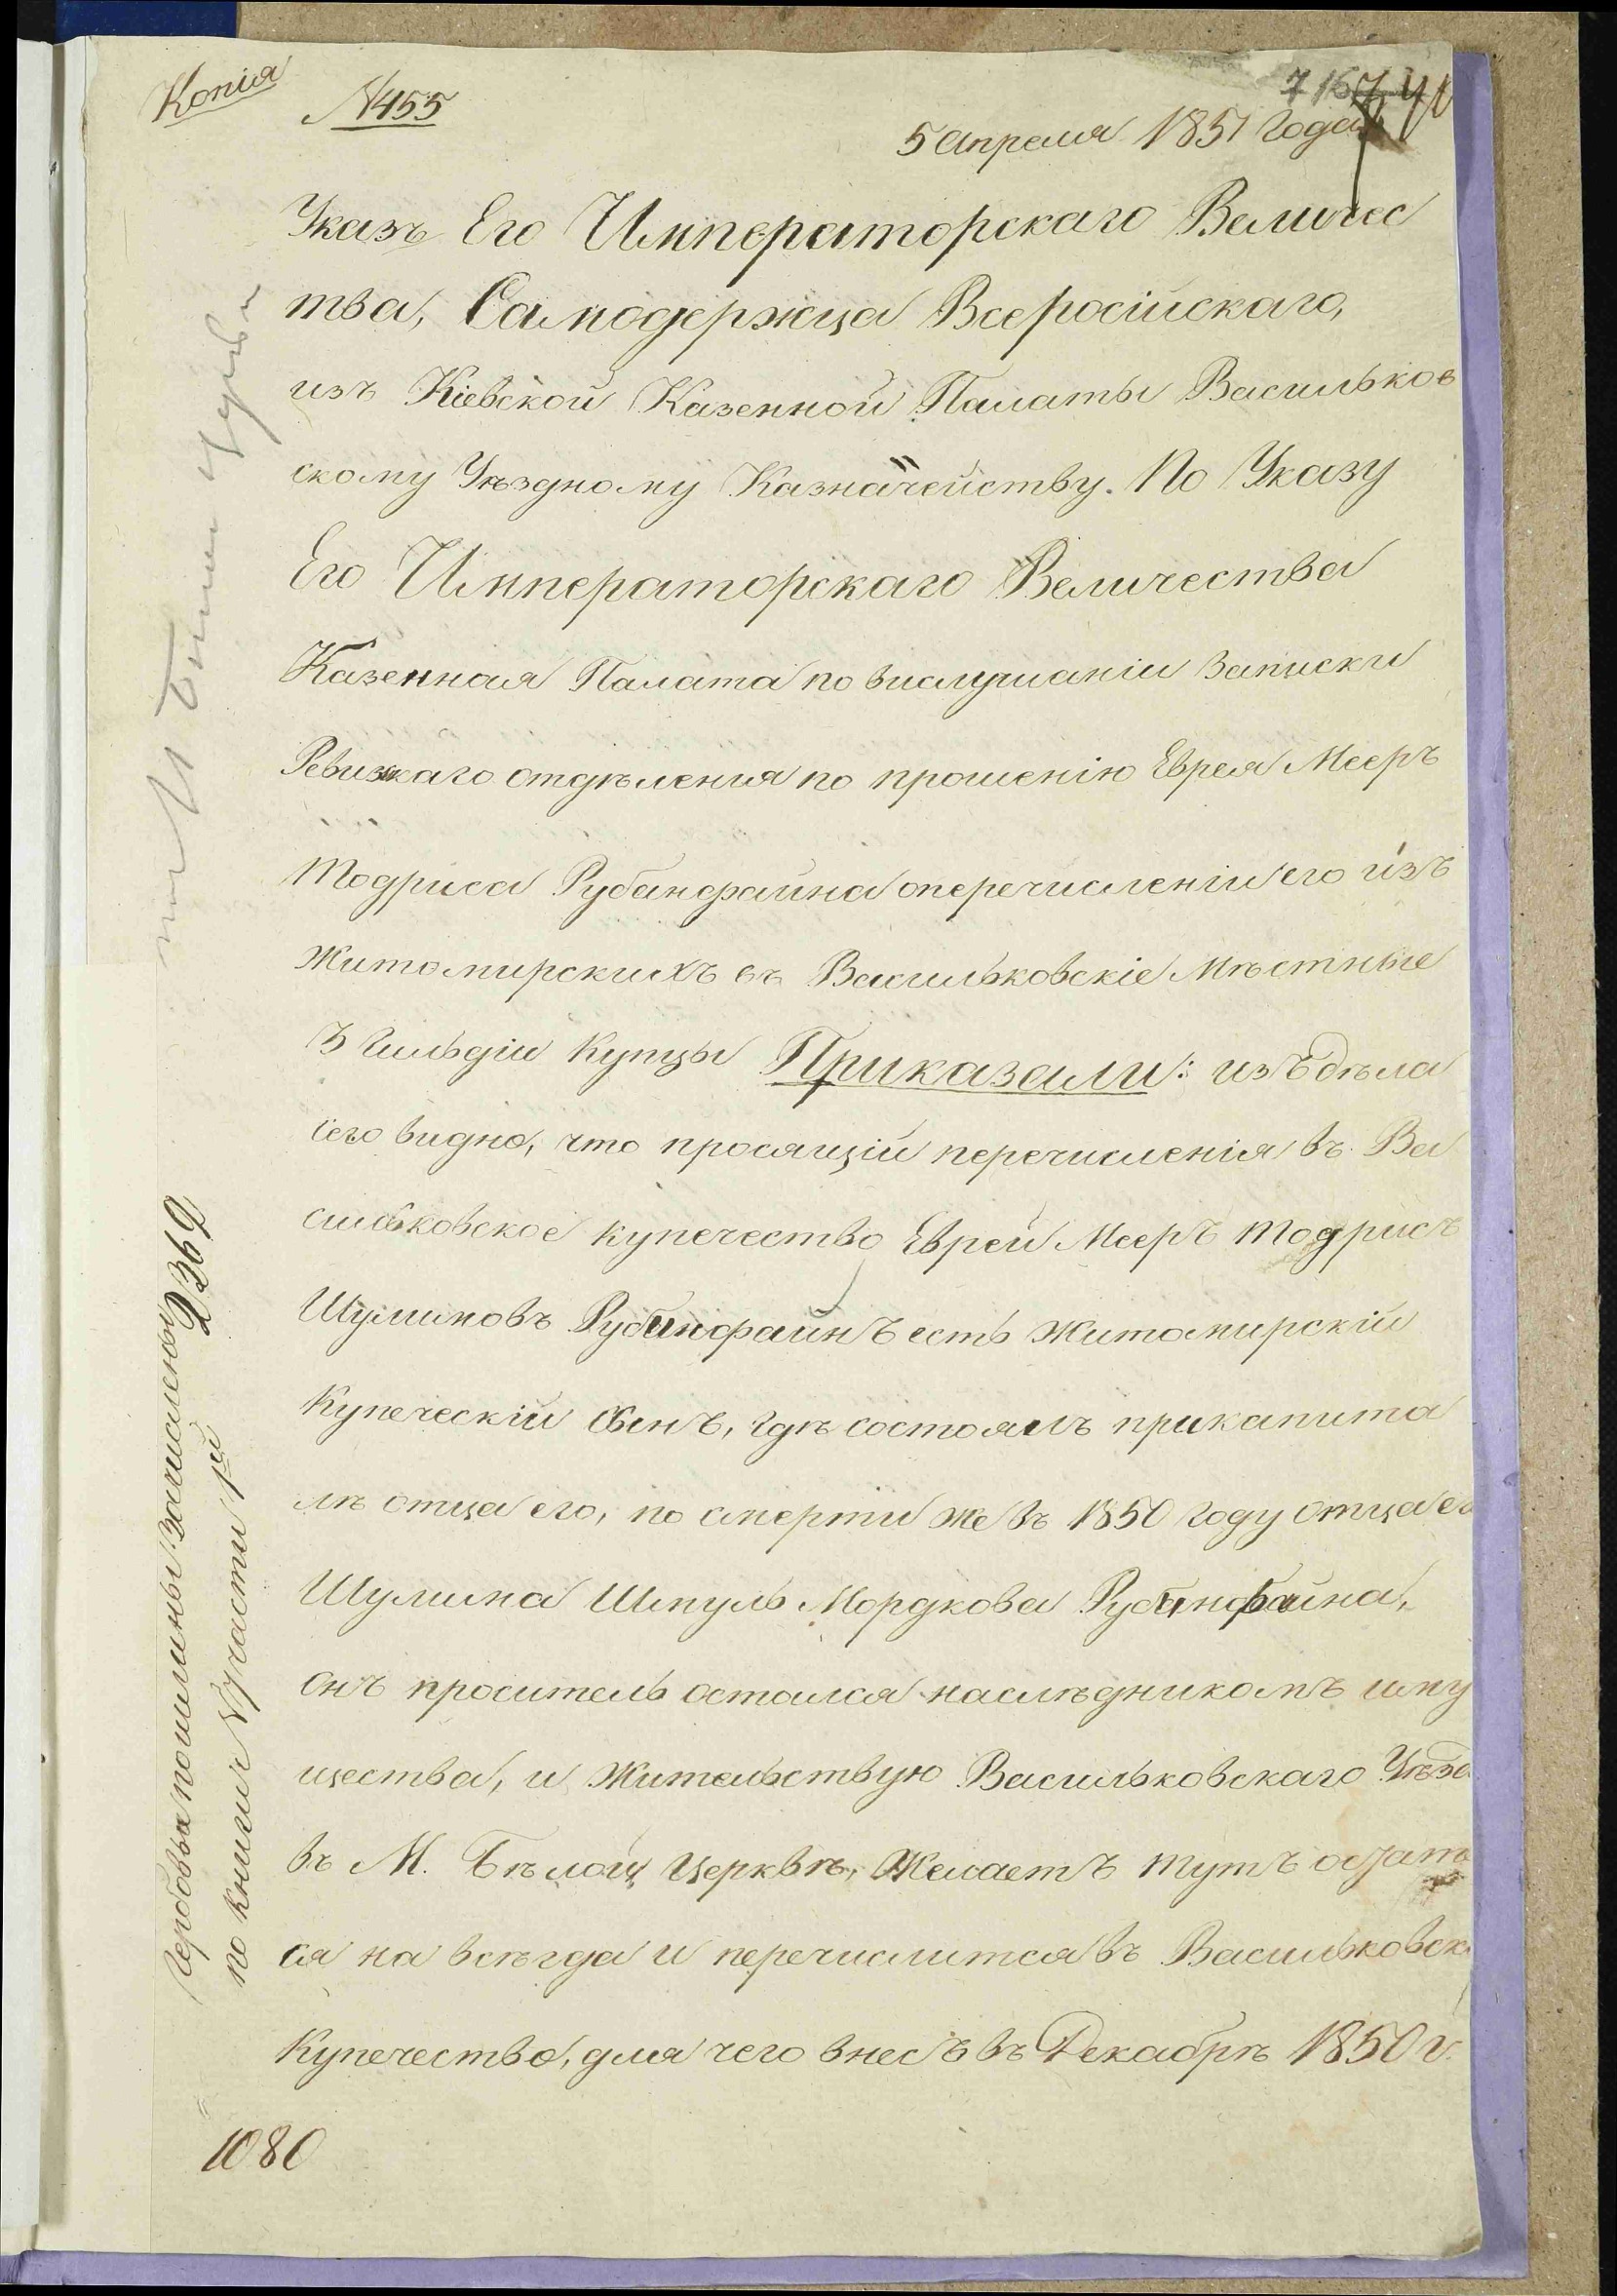 Копія
№455
5 Апреля 1851 Года
Указъ Его Императорскаго Величес
тва, Самодержца Всеросійскаго,
изъ Кіевской Казенной Палаты Васильков
скому Уѣздному Казначейству. По Указу
Его Императорскаго Величества
Казенная Палата по выслушаніи Записки
Ревизкаго отдѣленія по прошенію Еврея Мееръ
Тодриса Рубанфайна о перечисленіи его изъ
Житомирскихъ въ Васильковскіе Мѣстные
3 Гильдіи Купцы Приказали: изъ дѣла
сего видно, что просящій перечисленія въ Ва
сильковское купечество Еврей Мееръ Тодрисъ
Шулимовъ Рубинфайнъ есть Житомирскій
Купеческій Сынъ, гдѣ состоялъ при капита
лѣ отца его, по смерти же въ 1850 году отца его
Шулима Шмуль Мордкова Рубинфайна,
онъ проситель остался наслѣдникомъ иму
щества, и жительствую Васильковскаго Уѣзда
въ М. Бѣлой Церквѣ, Желаетъ тутъ остать
ся на всѣгда и перечислится въ Васильковск
Купечество, для чего внесъ въ Декабрѣ 1850 г.
Гербовыя пошлины Зачислены
2369
по книги № участи 1й
1080